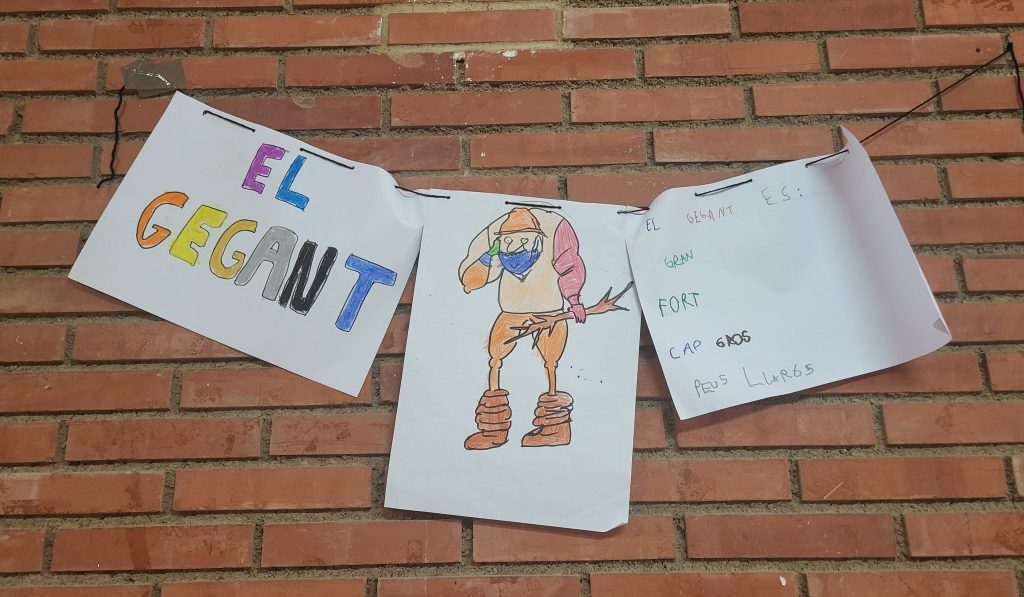 EL
GEGANT
EL GEGANT ES:
GRAN
FORT
CAP GROS
PEUS LLARGS